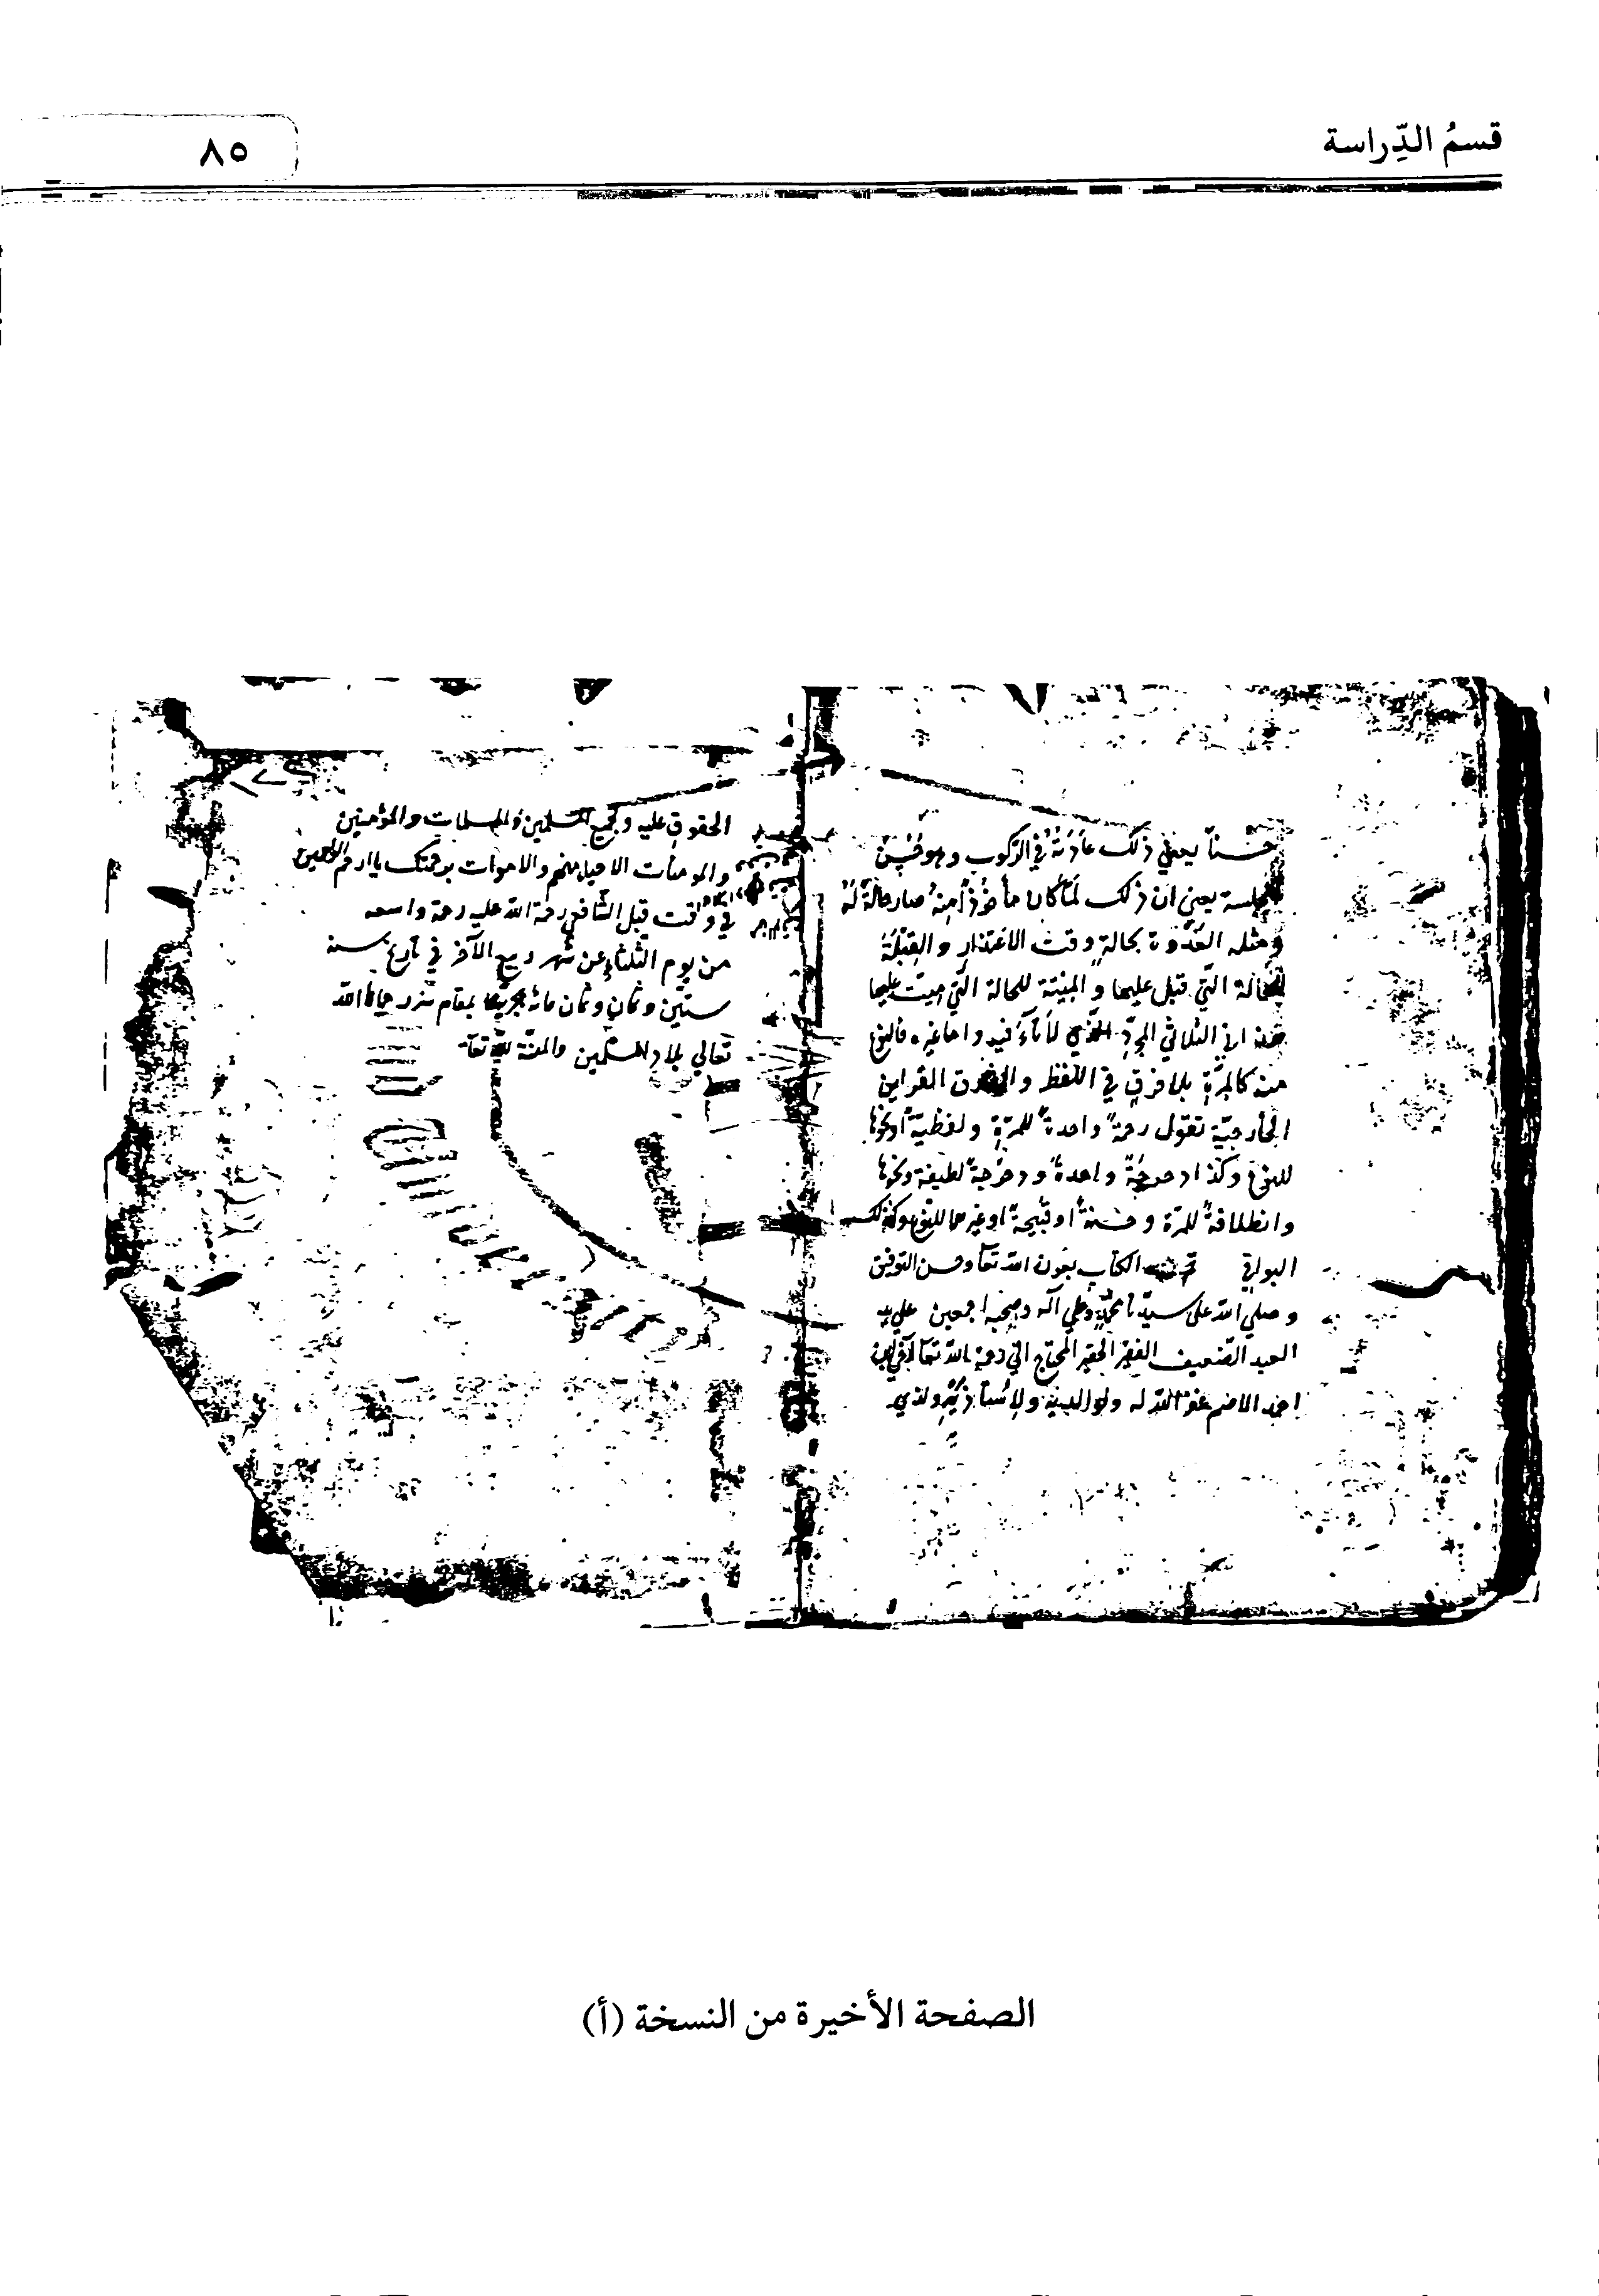 قسمُ الدِّراسة
٨٥
حسناً يعني ذلك عَادَتُهُ في الركوب وهو حَسَن
الجلسة يعني ان ذلك لمّا كان مأخوذاً مِنهُ صار حالةً لَهُ
ومثله العذرة بحالةٍ وقت الاعتذار والقِتْلَةُ
للحالة التي قتل عليها والمِيْتة للحالة التي ميت عليها
هذا في الثلاثي المجرّد الذي لا تآء فيه واما غيره فالنوع
منه كالمرّةِ بلا فرقٍ في اللفظ والفارق القراين
الخارجيّة تقول رحمةً واحدةً للمرّةِ ولطيفةً او نحوها
للنوع وكذا دحرجةً واحدةً ودحرجةً لطيفة ونحوها
وانطلاقةً للمرّة وحسنةً او قبيحةً او غيرهما للنوع وكذلك
البواقي الكتاب بعون الله تعآ وحسن التوفيق
وصلى الله على سيدنا محمدٍ وعلى آله وصحبه اجمعين على يد
العبد الضعيف الفقير الحقير المحتاج الى رحمة الله تعآ
احمد عفر الله له ولوالديه ولاستاذيه ولذي
الحقوق عليه ولجميع المسلمين والمسلمات والمؤمنين
والمومنات الاحياء منهم والاموات برحمتك ياارحم الراحمين
في وقت قبل الشافي رحمة الله عليه رحمة واسعه
من يوم الثلثاء عن شهر ربيع الآخر في تاريخ سنة
ستين وثمان وثمان مائة هجريّة بمقام حماها الله
تعالى بلاد المسلمين والمنّة لله تعآ
الصفحة الأخيرة من النسخة (أ)